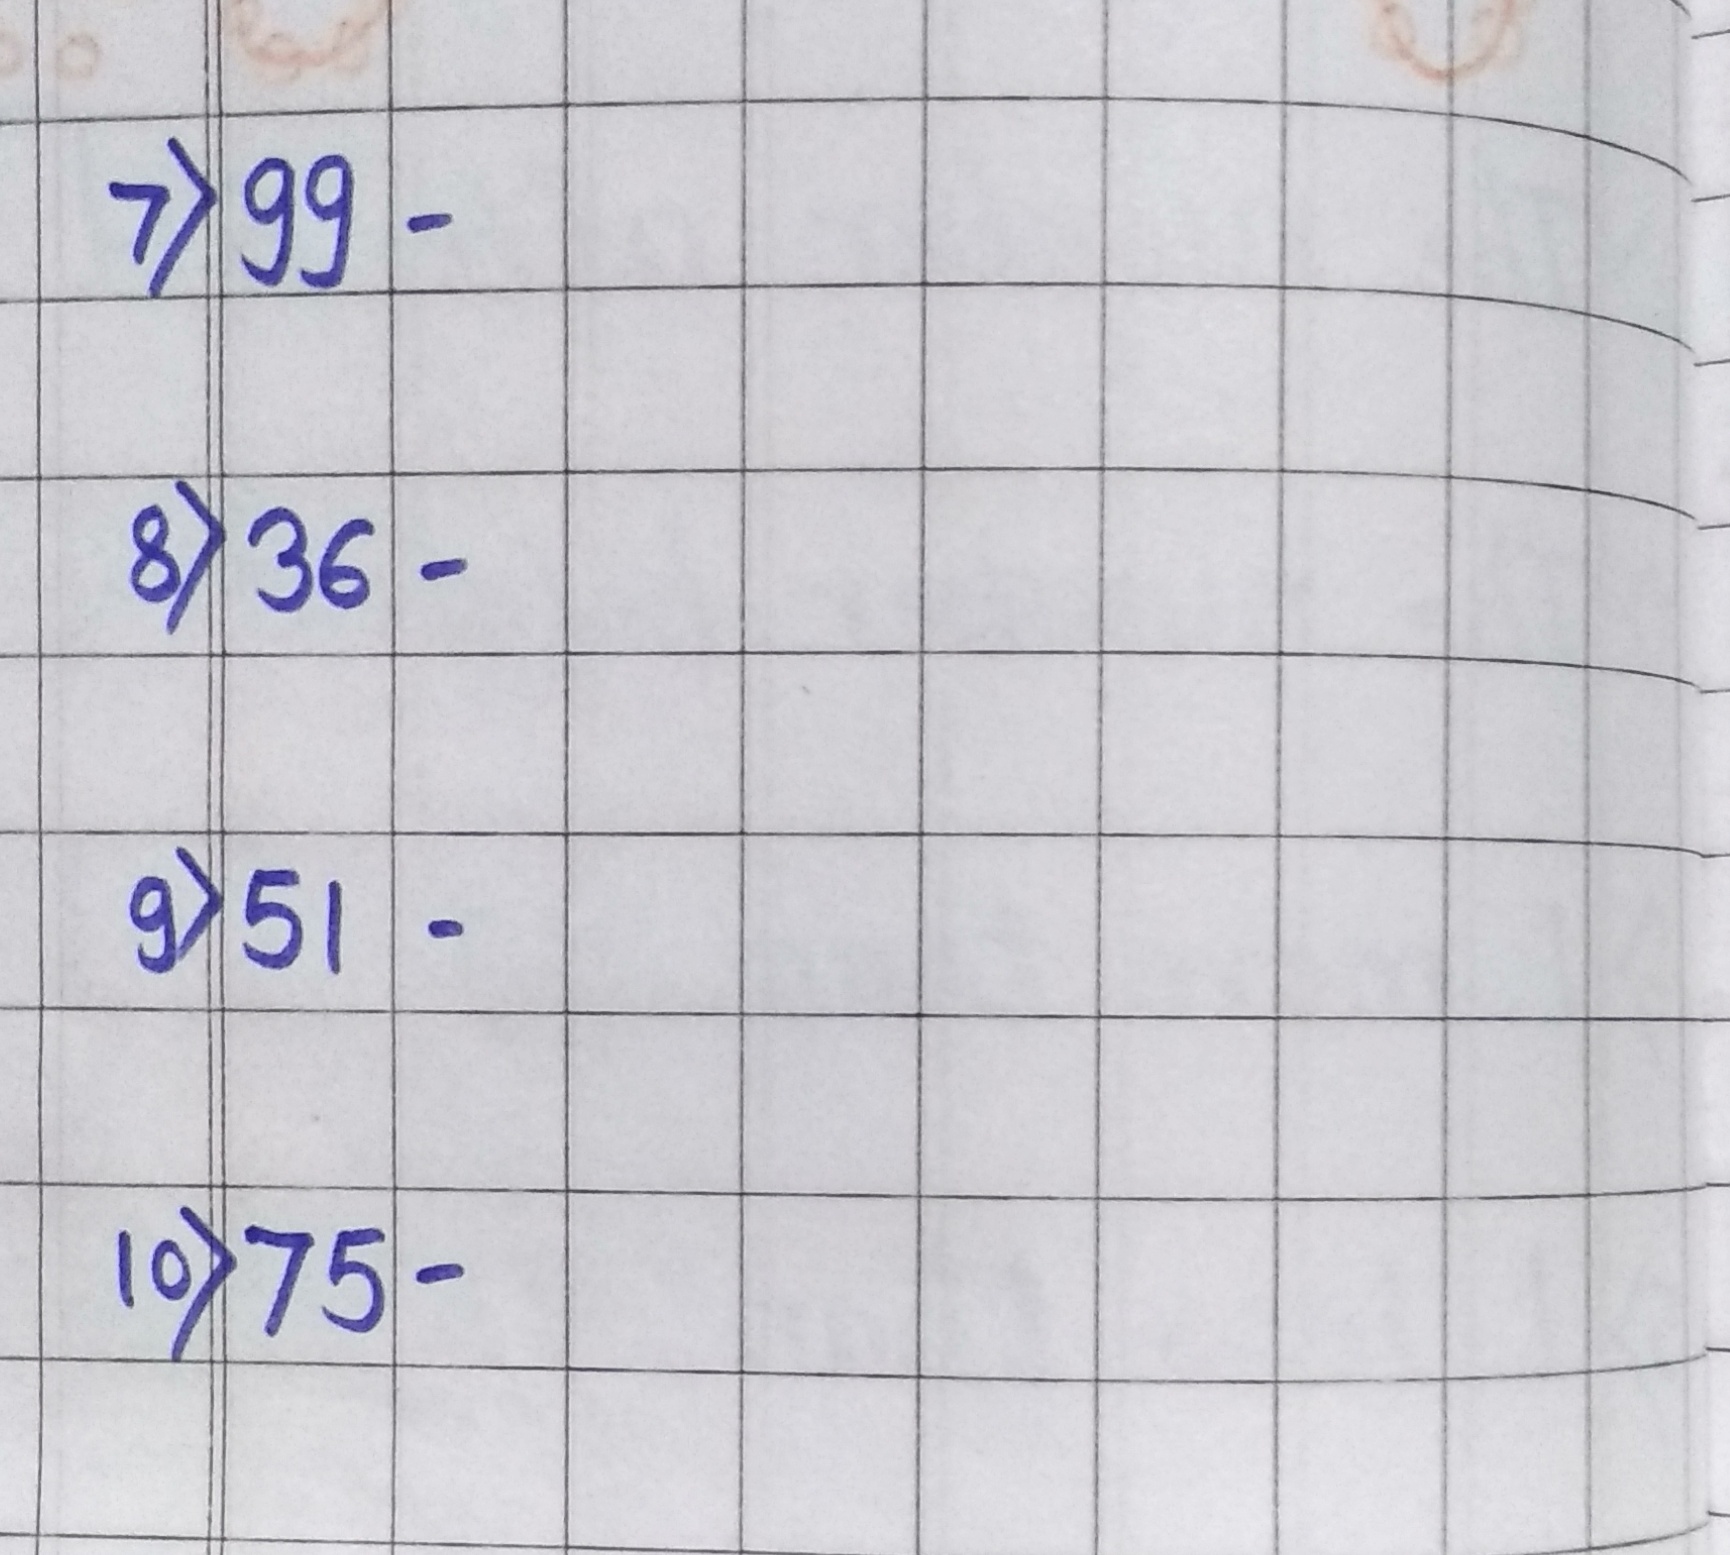 7) 99 -
8) 36 -
9) 51 -
10) 75 -